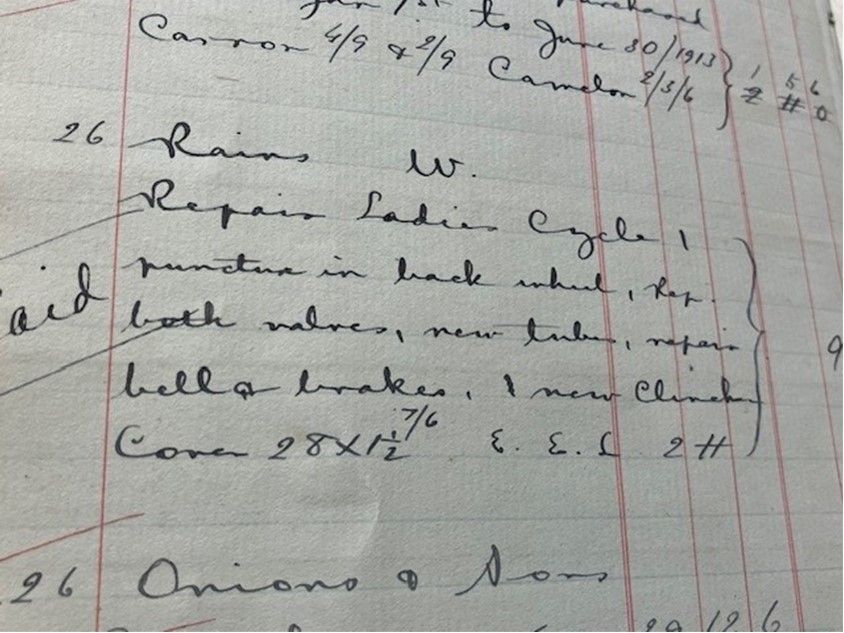 Jan 1st to June 30/1913
Cannon 4/9 & 2/9 Camelon 2/3/6
1 5 6
26 Rains W.
Repair Ladies Cycle 1
puncture in back wheel, Rep.
both valves, new tube, repair
bell & brakes, 1 new Clincher
Cover 28 X 1½ 7/6 E. E. L 2 H
9
aid
26 Onions & Sons
29 12 6